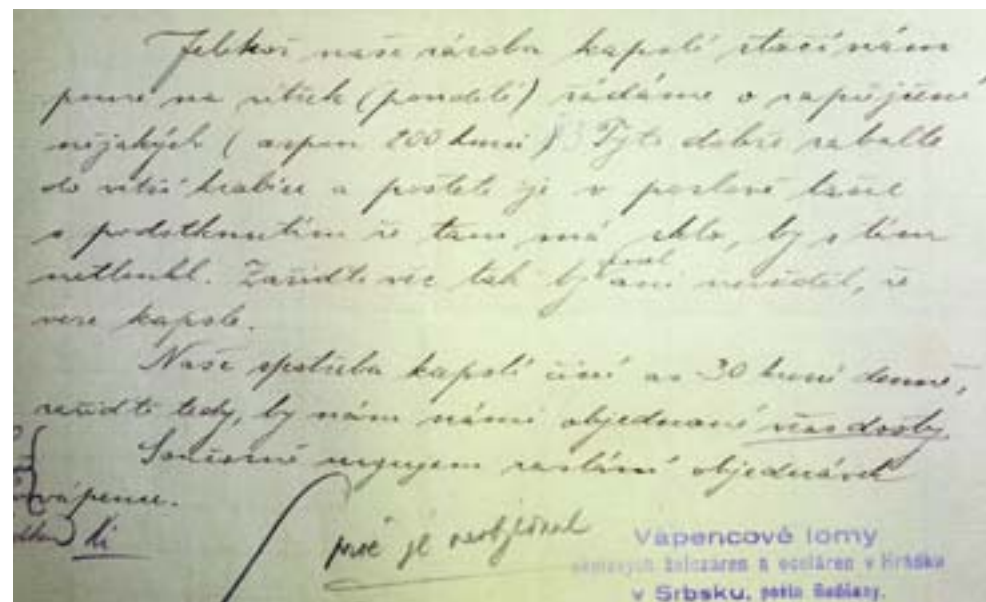 Jelikož naše zásoba kapslí stačí nám
pouze na zítřek (pondělí) žádáme o zapůjčení
nějakých (aspoň 200 kusů) Tyto dobře zabalte
do větší krabice a pošlete je v poslově tašce
s podotknutím že tam má sklo, by s tím
netloukl. Zařiďte věc tak by posel ani nevěděl, že
veze kapsle.
Naše spotřeba kapslí činí as 30 kusů denně,
zařiďte tedy, by nám námi objednané včas došly.
Současně urgujem zaslání objednávek
vápence.
proč je
Vápencové lomy
železáren a oceláren v Hrádku
v Srbsku, pošta Budňany.